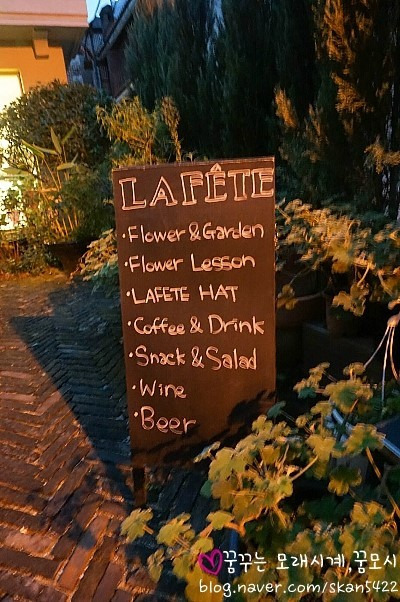 LAFÊTE
·Flower & Garden
·Flower Lesson
·LAFETE HAT
·Coffee & Drink
·Snack & Salad
·Wine
·Beer
꿈꾸는 모래시계,꿈모시
blog.naver.com/skan5422